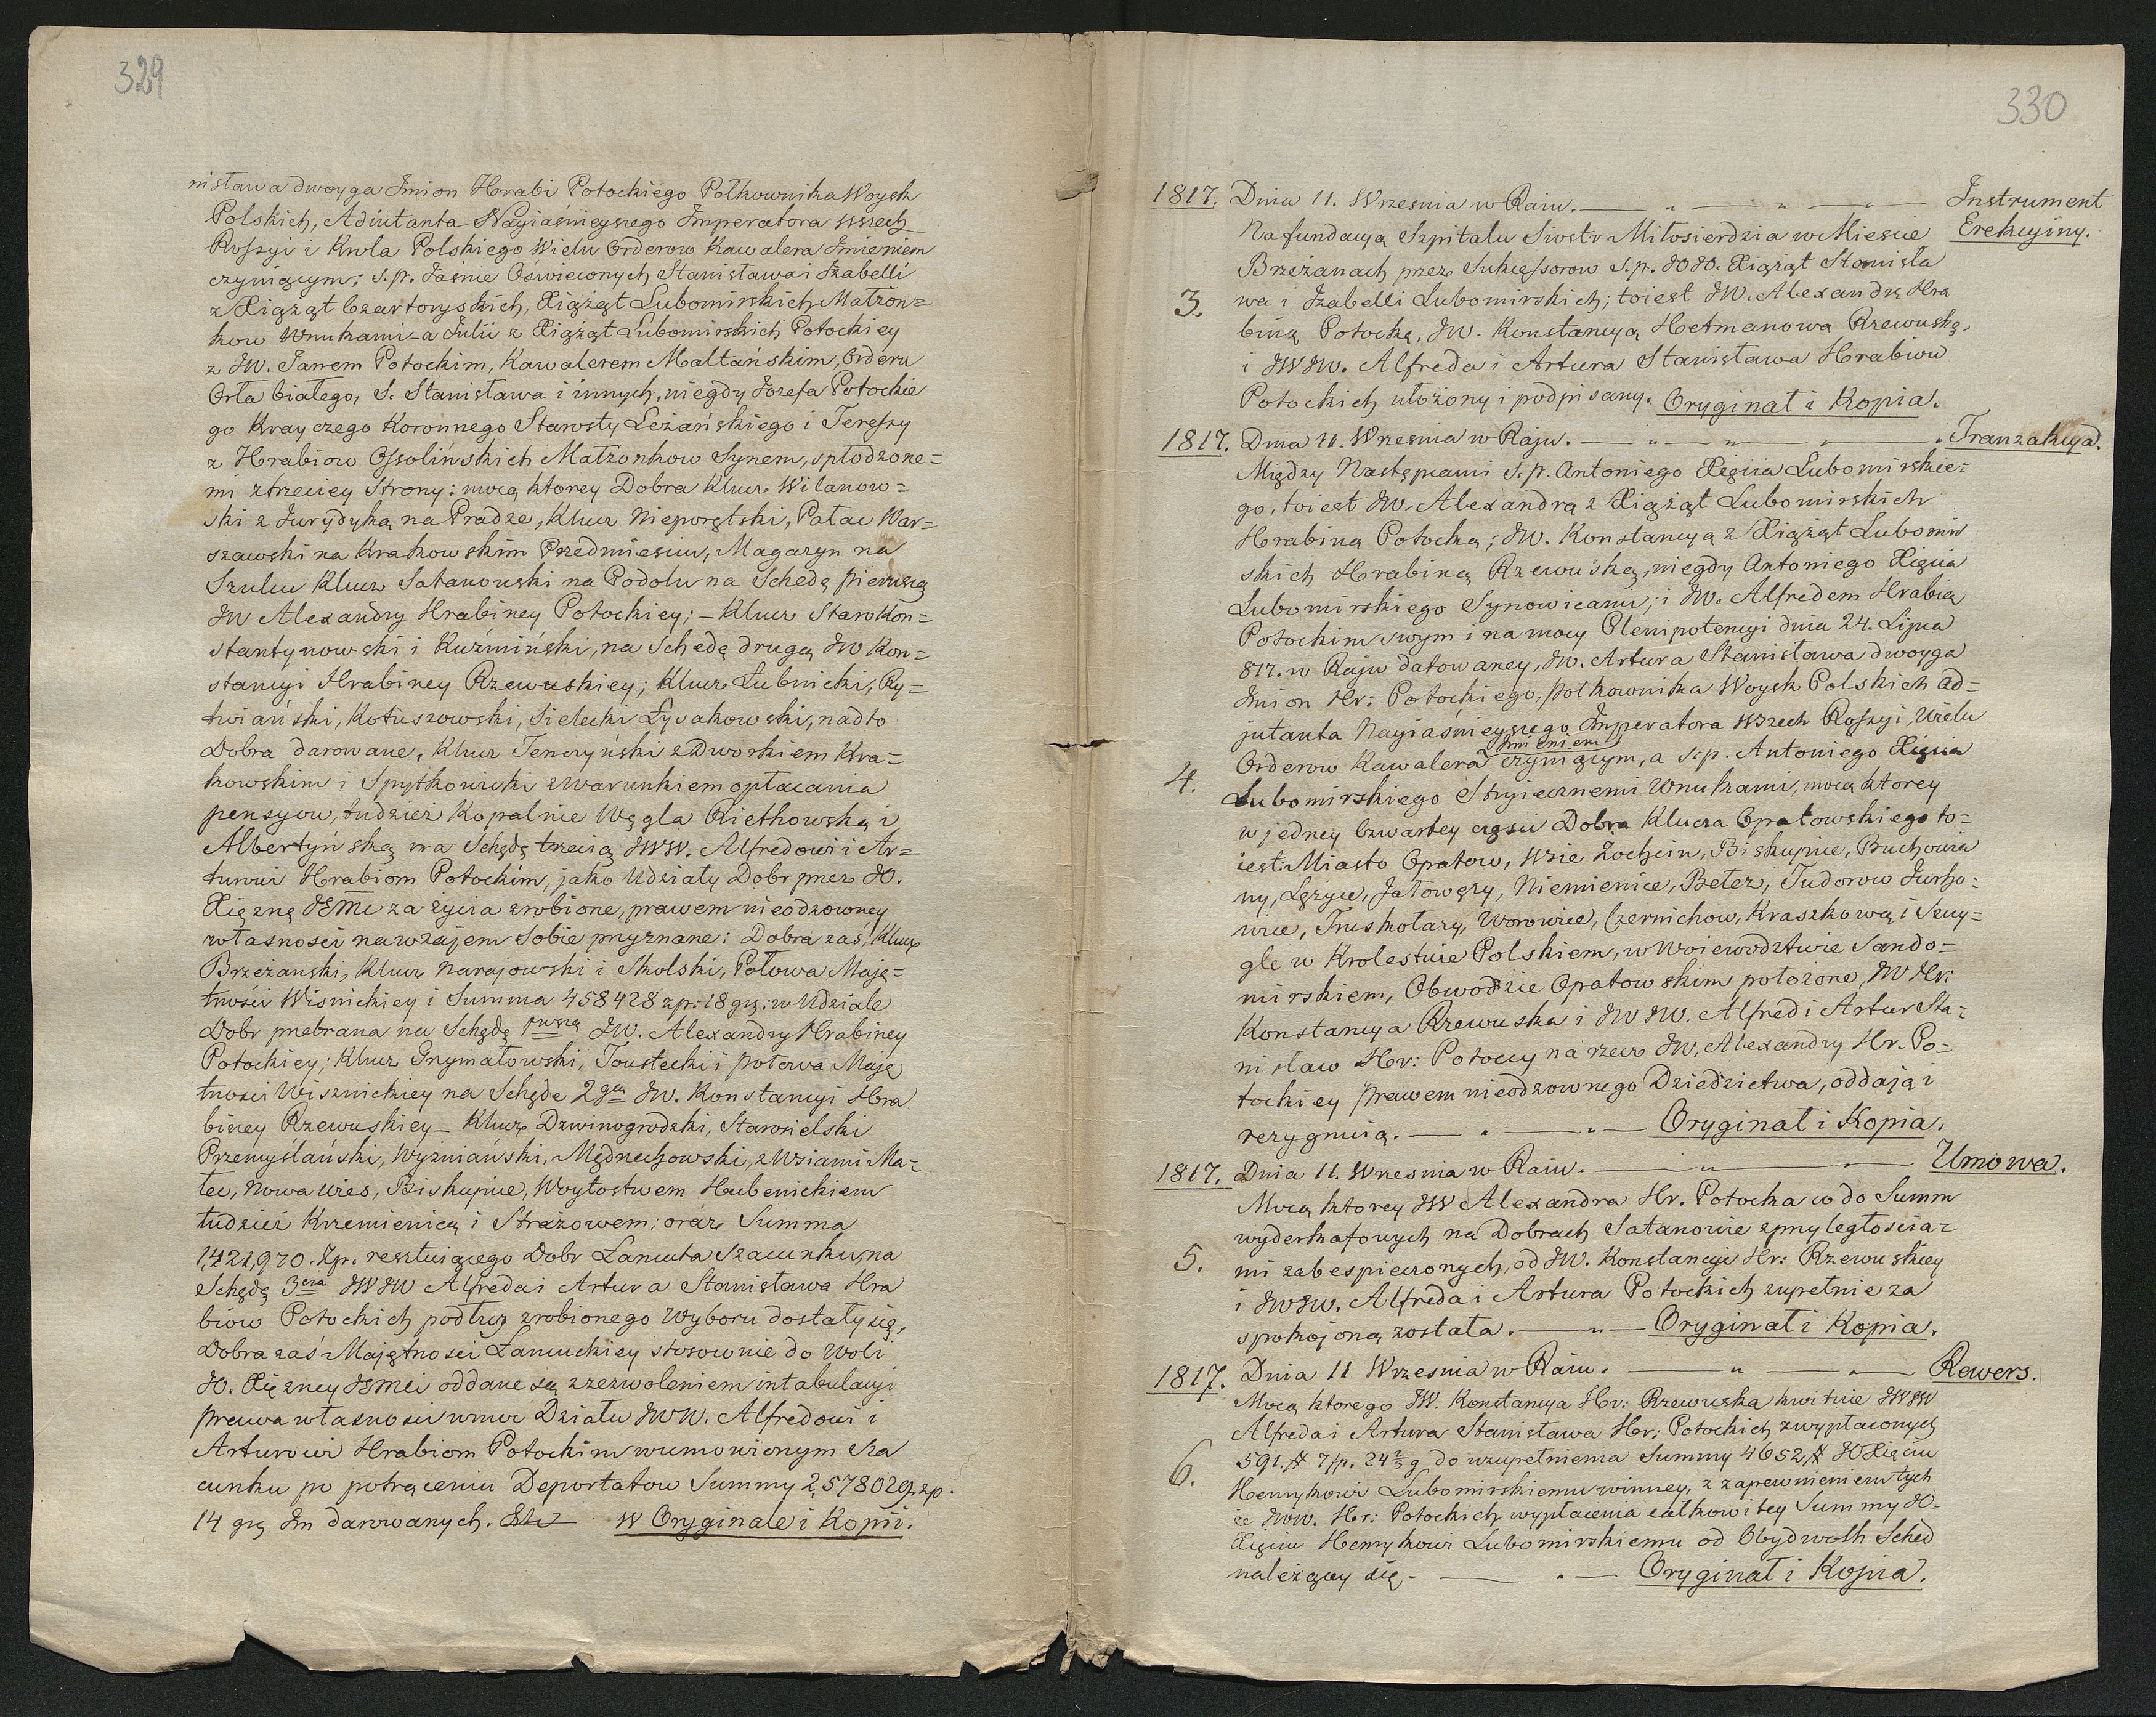 329
nisława dwoyga Imion Hrabi Potockiego Połkownika Woysk
Polskich, Adiutanta Nayiaśnieyszego Imperatora wszech
Rossyi i Krola Polskiego Wielu Orderow Kawalera Imieniem
czyniącym; s.p. Jaśnie Oświeconych Stanisława i Izabelli
z Xiążąt Czartoryskich, Xiążąt Lubomirskich Małżon=
kow Wnukami_a Julii z Xiążąt Lubomirskich Potockiey
z JW. Janem Potockim, Kawalerem Maltańskim, Orderu
Orła białego, S. Stanisława i innych, niegdy Jozefa Potockie
go Krayczego Koronnego Starosty Leżańskiego i Teressy
z Hrabiow Ossolińskich Małżonkow Synem, spłodzone=
mi ztrzeciey Strony: mocą ktorey Dobra Klucz Wilanow=
ski z Jurydyką na Pradze, Klucz Nieporętski, Pałac War=
szawski na Krakowskim Przedmiesciu, Magazyn na
Szulcu Klucz Satanowski na Podolu na Schedę pierwszą
JW Alexandry Hrabiney Potockiey; _ Klucz Starokon=
stantynowski i Kuźmiński, na Schedę drugą JW Kon=
stancyi Hrabiney Rzewuskiey; Klucz Lubnicki, Ry=
twiański, Kotuszowski, Sielecki Łyvakowski, nadto
Dobra darowane, Klucz Tenczyński z Dworkiem Kra=
kowskim i Spytkowicki z warunkiem opłacania
pensyow, tudzież Kopalnie Węgla Riethowską i
Albertyńską na Schędę trzecią JWW. Alfredowi i Ar=
turowi Hrabiom Potockim, jako Udziały Dobr przez JO.
Xiężnę JEMć za życia zrobione, prawem nieodzowney
własności nawzajem Sobie przyznane: Dobra zaś, Klucz
Brzeżanski, Klucz Narajowski i Skolski, Połowa Maję=
tności Wisnickiey i Summa 458428 zp: 18 gr: w Udziale
Dobr przebrana na Schędę pwszą JW. Alexandry Hrabiney
Potockiey; Klucz Grzymałowski, Toustecki i połowa Maję
tnosci Wisznickiey na Schędę 2gą JW. Konstancyi Hra
biney Rzewuskiey _ Klucz Dzwinogrodzki, Starosielski
Przemyślański, Wyżniański, Mędrzechowski, z Wsiami Ma=
tec, Nowa wies, Biskupice, Woytostwem Hubenickiem
tudzież Krzemienicą i Strażowem; oraz Summa
1,421,970. Zp. resztuiącego Dobr Łancuta Szacunku, na
Schędę 3cią JWJW Alfreda i Artura Stanisława Hra
biow Potockich podług zrobionego Wyboru dostały się,
Dobra zaś Majętnosci Łancuckiey stosownie do Woli
JO. Xiężney JEMci oddane są z zezwoleniem intabulacyi
prawa własnosci wmoc Działu JWW. Alfredowi i
Arturowi Hrabiom Potockim w umowionym Sza
cunku po potrąceniu Deportatow Summy 2,578029, zp.
14 gr Im darowanych. W Oryginale i Kopii.
330
1817. Dnia 11. Wrzesnia w Raiu. Instrument
Na fundacyą Szpitalu Siostr Miłosierdzia w Miescie Erekcyiny.
Brzeżanach przez Sukcessorow s.p. JOJO. Xiążąt Stanisła
3. wa i Izabelli Lubomirskich; toiest JW. Alexandrę Hra
binę Potocką, JW. Konstancyą Hetmanowa Rzewuską,
i JWJW. Alfreda i Artura Stanisława Hrabiow
Potockich ułożony i podpisany. Oryginał i Kopia.
1817. Dnia 11. Wrzesnia w Raju. Tranzakcya.
Między Następcami s.p. Antoniego Xięcia Lubomirskie=
go, toiest JW. Alexandrą z Xiążąt Lubomirskich
Hrabiną Potocką; JW. Konstancyą z Xiążąt Lubomir
skich Hrabiną Rzewuską, niegdy Antoniego Xięcia
Lubomirskiego Synowicami; i JW. Alfredem Hrabią
Potockim swym i na mocy Plenipotencyi dnia 24. Lipca
817. w Raju datowaney, JW. Artura Stanisława dwoyga
Imion Hr: Potockiego, połkownika Woysk Polskich ad=
jutanta Nayiaśnieyszego Imperatora Wszech Rossyi, Wielu
Imieniem
4. Orderow Kawalera czyniącym, a s.p. Antoniego Xięcia
Lubomirskiego Stryiecznemi Wnukami, mocą ktorey
w jedney czwartey części Dobra Klucza Opatowskiego to=
iest: Miasto Opatow, Wsie Zochcin, Biskupice, Buchowia
ny, Lężyce, Jałowęzy, Niemienice, Betez, Tudorow Jurko=
wice, Truskolazy, Worowice, Czernichow, Kraszkow, i Szuy=
gle w Krolestwie Polskiem, w Woiewodztwie Sando=
mirskiem, Obwodzie Opatowskim położone, JW Hr:
Konstancya Rzewuska i JWJW. Alfred i Artur Sta=
nisław Hr: Potoccy na rzecz JW. Alexandry Hr. Po=
tockiey prawem nieodzownego Dziedzictwa, oddają i
rezygnuią. Oryginał i Kopia.
1817. Dnia 11. Wrzesnia w Raiu. Umowa.
Mocą ktorey JW Alexandra Hr. Potocka co do Summ
wyderkafowych na Dobrach Satanowie z przyległościa=
5. mi zabespieczonych, od JW. Konstancyi Hr: Rzewuskiey
i JWJW. Alfreda i Artura Potockich zupełnie za
spokojoną została. Oryginał i Kopia.
1817. Dnia 11 Wrzesnia w Raiu. Rewers.
Mocą ktorego JW. Konstancya Hr: Rzewuska kwituie JWJW
Alfreda i Artura Stanisława Hr: Potockich z wypłaconych
6. 591. # 7/p. 24 2/3 g. do uzupełnienia Summy 4652, # JO Xięciu
Henrykowi Lubomirskiemu winney, z zapewnieniem tych
że JWW. Hr: Potockich wypłacenia całkowitey Summy JO.
Xięciu Henrykowi Lubomirskiemu od Obydwoch Sched
należącey się. Oryginał i Kopia.